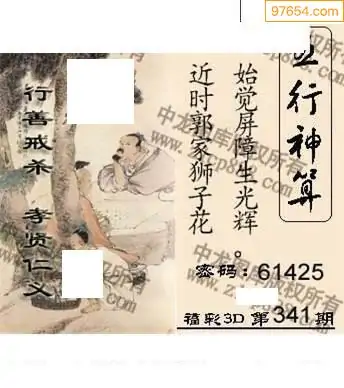 97654.com
五行神算
始觉屏障生光辉。
近时郭家狮子花
密码：61425
福彩3D 第341期
行善戒杀 孝贤仁义